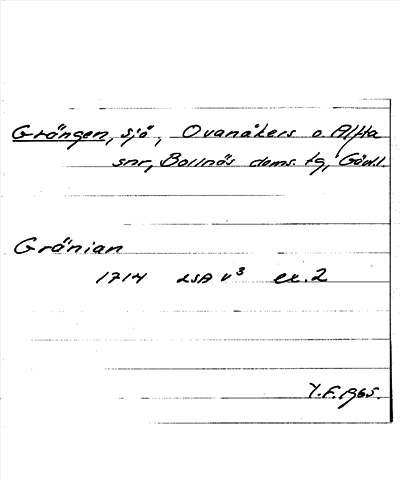 Grängen, sjö, Ovanåkers o. Alfta
snr, Bollnäs doms. tg, Gävl.
Gränian
1714 LSA V³ ex. 2
Y.F. 1965.